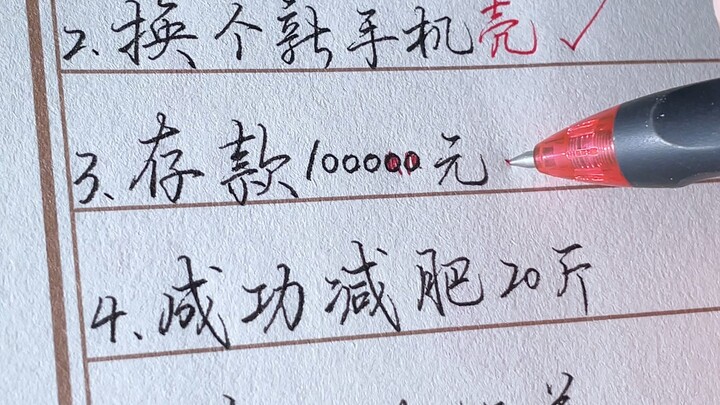 2. 换个新手机壳✓
3. 存款100000元
4. 成功减肥20斤